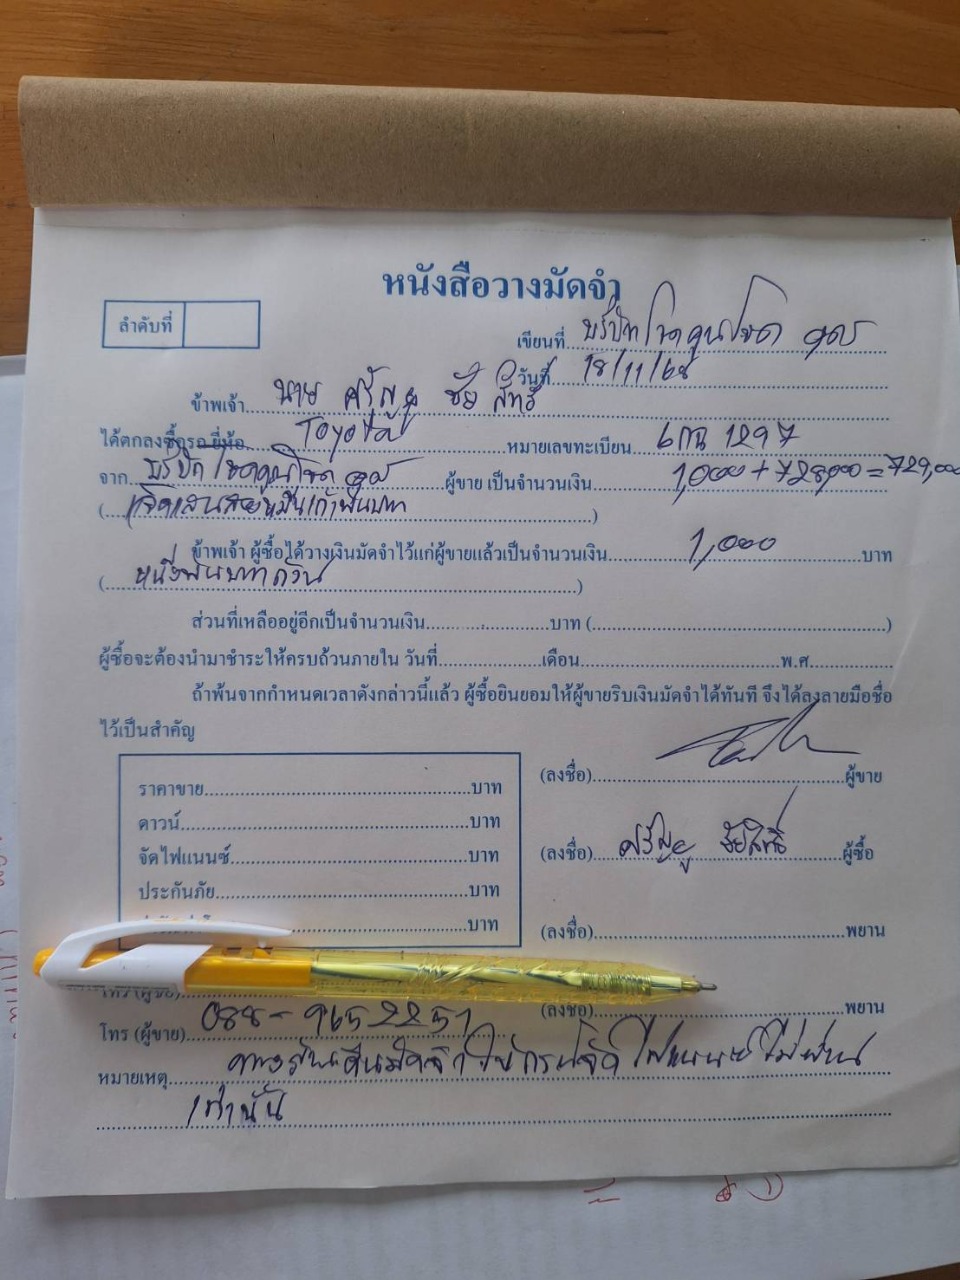 หนังสือวางมัดจำ
ลำดับที่
เขียนที่ บริษัท โชคคูนโชค อุดร
วันที่ 18/11/68
ข้าพเจ้า นาย ศรัญญู ชัยสิทธิ์
ได้ตกลงซื้อรถ ยี่ห้อ Toyota หมายเลขทะเบียน 6กฉ 1297
จาก บริษัท โชคคูนโชค อุดร ผู้ขาย เป็นจำนวนเงิน 1,000 + 728,000 = 729,000
(เจ็ดแสนสองหมื่นเก้าพันบาท)
ข้าพเจ้า ผู้ซื้อได้วางเงินมัดจำไว้แก่ผู้ขายแล้วเป็นจำนวนเงิน 1,000 บาท
(หนึ่งพันบาทถ้วน)
ส่วนที่เหลืออยู่อีกเป็นจำนวนเงิน บาท ( )
ผู้ซื้อจะต้องนำมาชำระให้ครบถ้วนภายใน วันที่ เดือน พ.ศ.
ถ้าพ้นจากกำหนดเวลาดังกล่าวนี้แล้ว ผู้ซื้อยินยอมให้ผู้ขายริบเงินมัดจำได้ทันที จึงได้ลงลายมือชื่อ
ไว้เป็นสำคัญ
(ลงชื่อ) ผู้ขาย
ราคาขาย บาท
ดาวน์ บาท
(ลงชื่อ) ศรัญญู ชัยสิทธิ์ ผู้ซื้อ
จัดไฟแนนซ์ บาท
ประกันภัย บาท
บาท
(ลงชื่อ) พยาน
โทร (ผู้ซื้อ)
(ลงชื่อ) พยาน
โทร (ผู้ขาย) 088-9652251
หมายเหตุ ทางร้านคืนมัดจำในกรณีจัดไฟแนนซ์ไม่ผ่าน
เท่านั้น